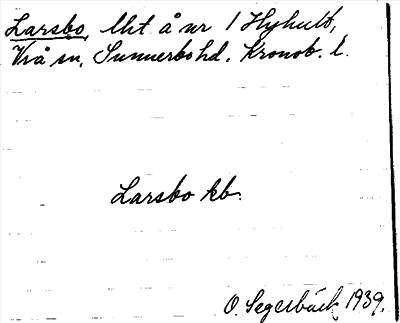 Larsbo, lht å nr 1 Hyhult,
Vrå sn, Sunnerbo hd. Kronob. l.
Larsbo kb.
O. Segerbäck 1939.